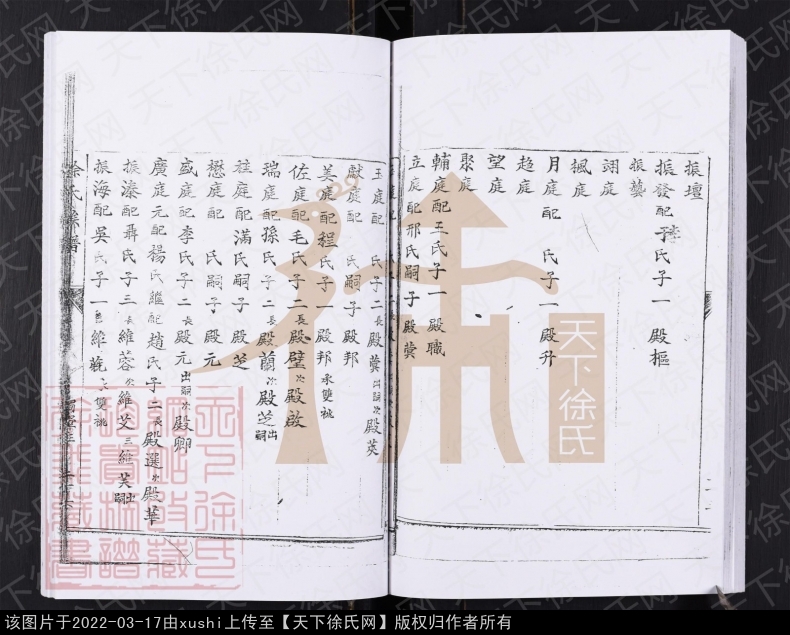 振壇
振發配于氏子一 殿樞
振藝
翊庭
楓庭
月庭配 氏子一 殿升
趋庭
望庭
聚庭
輔庭配王氏子一 殿職
立庭配邢氏嗣子 殿冀
玉庭配 氏子二長殿冀出嗣次殿英
獻庭配 氏嗣子 殿邦
美庭配程氏子一 殿邦承雙祧
佐庭配毛氏子二長殿璧次殿啟
瑞庭配孫氏子二長殿蘭次殿芝出嗣
桂庭配滿氏嗣子 殿芝
懋庭配 氏嗣子 殿元
盛庭配李氏子二長殿元出嗣次殿卿
廣庭元配楊氏繼配趙氏子二長殿選次殿華
振濠配聶氏子三長維蓉次維芠三維芙出嗣
振海配吳氏子一 維 雙祧
徐氏 譜
天下徐氏
天下徐氏网
该图片于2022-03-17由xushi上传至【天下徐氏网】版权归作者所有